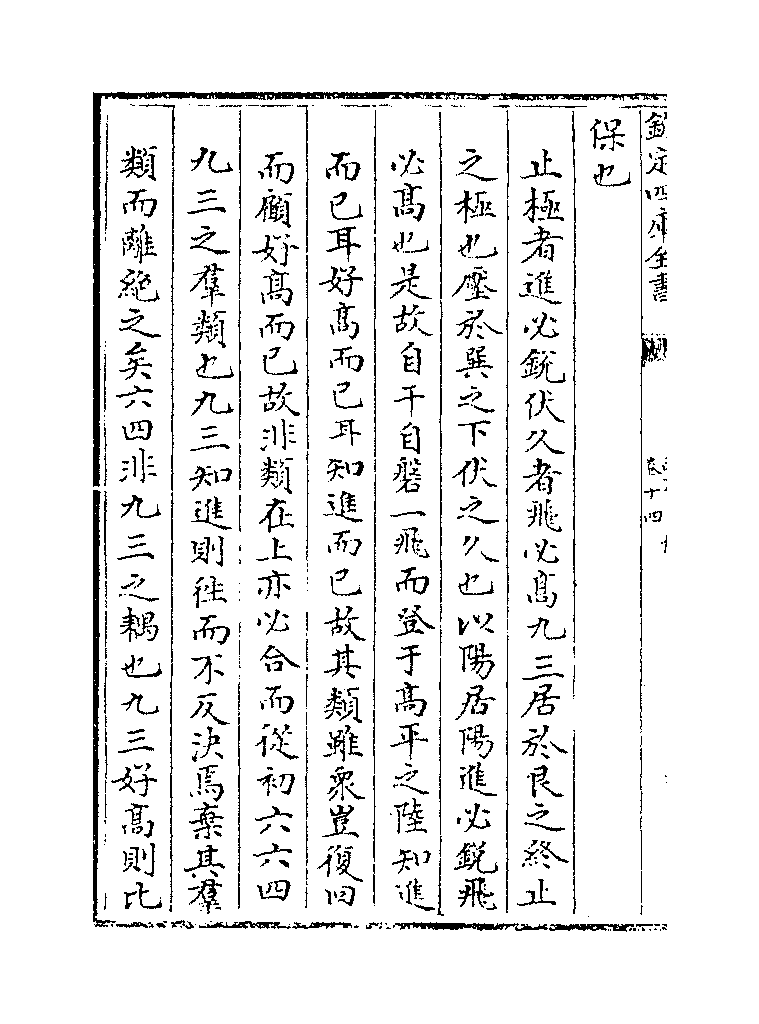 欽定四庫全書
卷十四
保也
止極者進必銳伏久者飛必髙九三居於艮之終止
之極也壓於巽之下伏之久也以陽居陽進必銳飛
必髙也是故自干自磐一飛而登于髙平之陸知進
而已耳好髙而已耳知進而已故其類雖衆豈復回
而顧好髙而已故非類在上亦必合而從初六六四
九三之羣類也九三知進則往而不反決焉棄其羣
類而離絶之矣六四非九三之耦也九三好髙則比